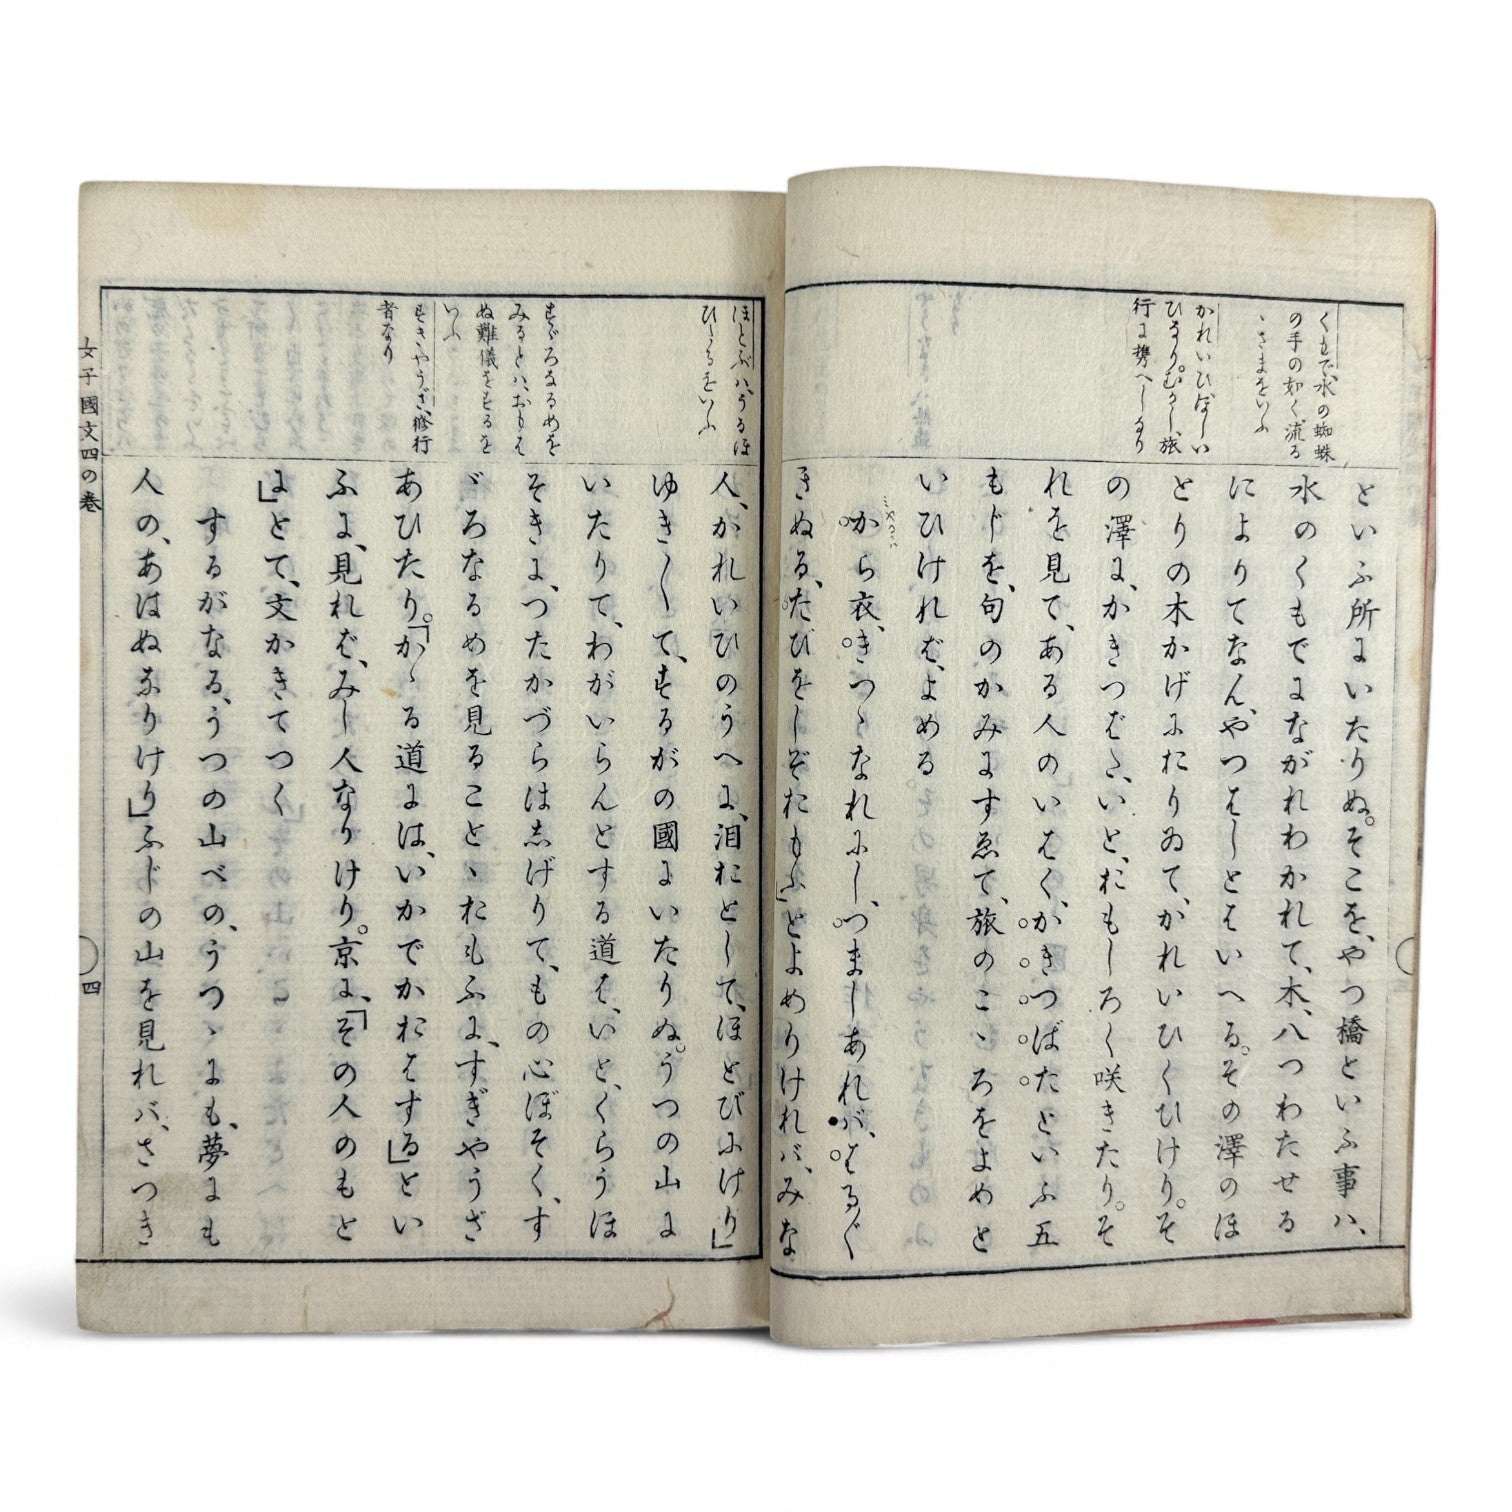 くもで、水の蜘蛛
の手の如く流るゝ
さまをいふ
かれいひ、ほしい
ひなり。むかし、旅
行に携へしなり
といふ所にいたりぬ。そこを、やつ橋といふ事ハ、
水のくもでにながれわかれて、木、八つわたせる
によりてなん、やつはしとはいへる。その澤のほ
とりの木かげにおりゐて、かれいひくひけり。そ
の澤に、かきつばた、いと、おもしろく咲きたり。そ
れを見て、ある人のいはく、かきつばたといふ五
もじを、句のかみにすゑて、旅のこゝろをよめと
いひければ、よめる
から衣、きつゝなれにし、つましあれバ、はるぐ
きぬる、たびをしぞおもふ」とよめりけれバ、みな
ほとぶハ、うるほ
ひたるをいふ
すゞろなるめを
みるとハ、おもは
ぬ難儀をするを
いふ
すぎやうざ、修行
者なり
人、かれいひのうへに、泪おとして、ほとびにけり」
ゆき〳〵て、するがの國にいたりぬ。うつの山に
いたりて、わがいらんとする道は、いと、くらうほ
そきに、つたかづらはしげりて、もの心ぼそく、す
ゞろなるめを見ることゝおもふに、すぎやうざ
あひたり。「かゝる道には、いかでかおはする」とい
ふに、見れば、みし人なりけり。京に、「その人のもと
に」とて、文かきてつく
するがなる、うつの山べの、うつゝにも、夢にも
人の、あはぬなりけり」ふじの山を見れバ、さつき
女子國文四の卷
四